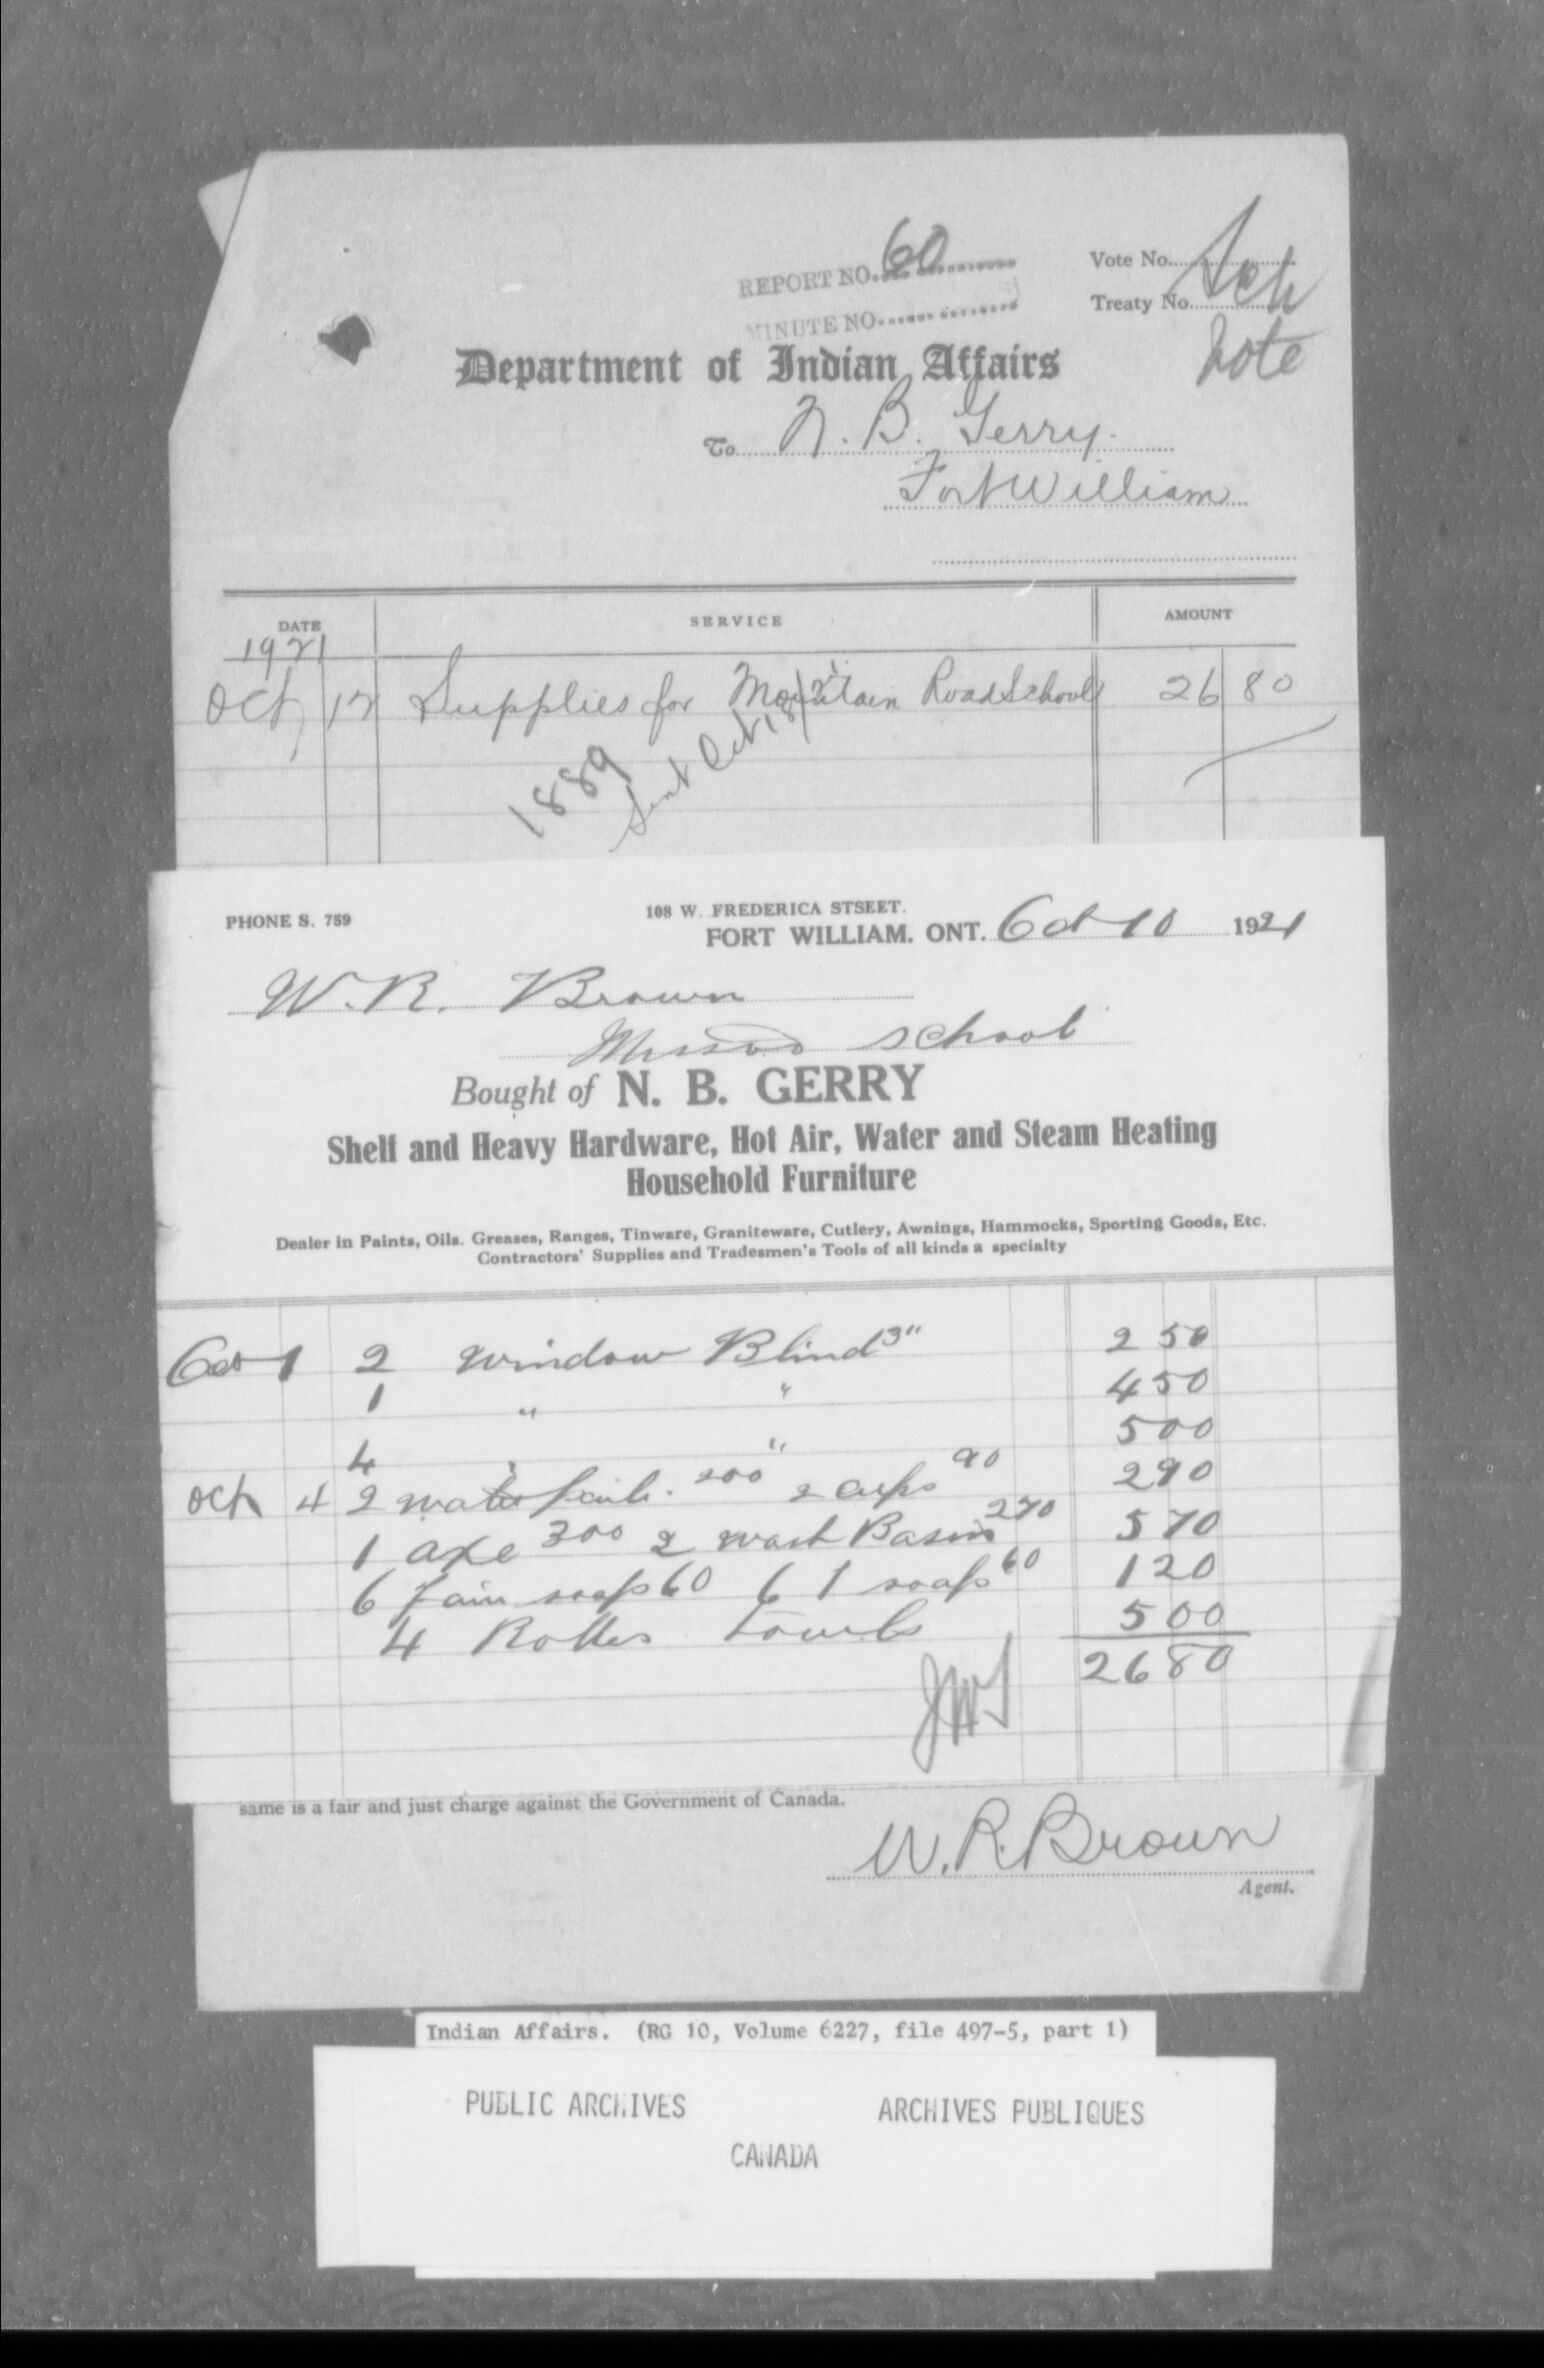 REPORT NO. 60
Vote No. Sch
MINUTE NO.
Treaty No.
Vote
Department of Indian Affairs
To N. B. Gerry.
Fort William
DATE SERVICE AMOUNT
1921
Oct 12 Supplies for Mountain Road School 26 80
1889
Sent Oct 18/21
PHONE S. 759
108 W. FREDERICA STSEET.
FORT WILLIAM. ONT. Oct 10 1921
W. R. Brown
Mission School
Bought of N. B. GERRY
Shelf and Heavy Hardware, Hot Air, Water and Steam Heating
Household Furniture
Dealer in Paints, Oils. Greases, Ranges, Tinware, Graniteware, Cutlery, Awnings, Hammocks, Sporting Goods, Etc.
Contractors' Supplies and Tradesmen's Tools of all kinds a specialty
Oct 1 2 Window Blind 3" 2 50
1 " " 4 50
4 " " 5 00
Oct 4 2 water pails. 200 2 cups 90 2 90
1 axe 300 2 wash Basins 270 5 70
6 fair soap 60 6 soaps 60 1 20
4 Roller Towels 5 00
26 80
JWS
same is a fair and just charge against the Government of Canada.
W. R. Brown
Agent.
Indian Affairs. (RG 10, Volume 6227, file 497-5, part 1)
PUBLIC ARCHIVES ARCHIVES PUBLIQUES
CANADA